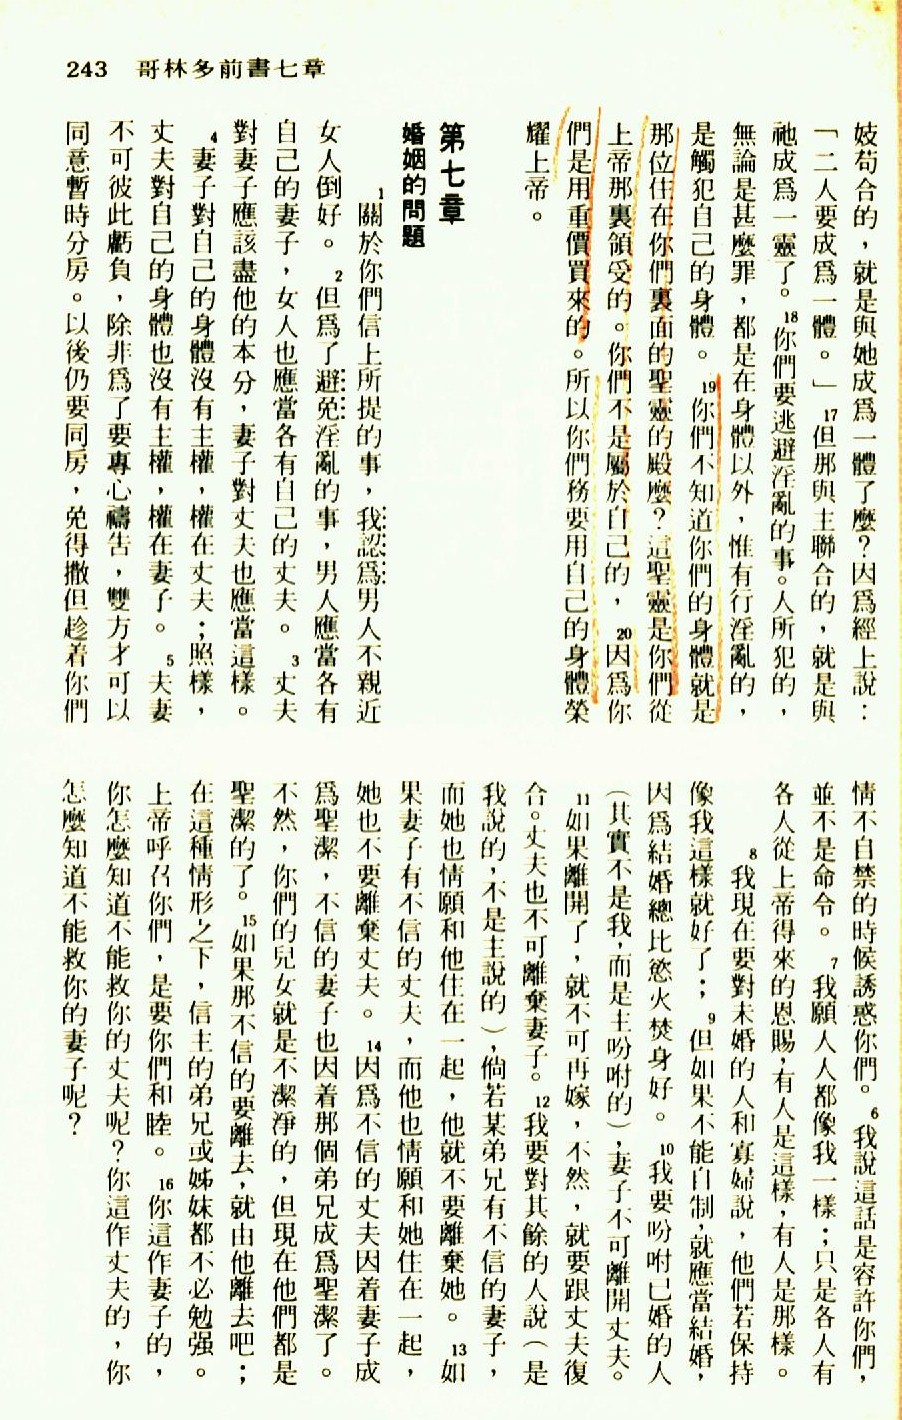 243 哥林多前書七章
妓苟合的，就是與她成爲一體了麼？因爲經上說：
「二人要成爲一體。」17但那與主聯合的，就是與
祂成爲一靈了。18你們要逃避淫亂的事。人所犯的，
無論是甚麼罪，都是在身體以外，惟有行淫亂的，
是觸犯自己的身體。19你們不知道你們的身體就是
那位住在你們裏面的聖靈的殿麼？這聖靈是你們從
上帝那裏領受的。你們不是屬於自己的，20因爲你
們是用重價買來的。所以你們務要用自己的身體榮
耀上帝。
第七章
婚姻的問題
1關於你們信上所提的事，我認爲男人不親近
女人倒好。2但爲了避免淫亂的事，男人應當各有
自己的妻子，女人也應當各有自己的丈夫。3丈夫
對妻子應該盡他的本分，妻子對丈夫也應當這樣。
4妻子對自己的身體沒有主權，權在丈夫；照樣，
丈夫對自己的身體也沒有主權，權在妻子。5夫妻
不可彼此虧負，除非爲了要專心禱告，雙方才可以
同意暫時分房。以後仍要同房，免得撒但趁着你們
情不自禁的時候誘惑你們。6我說這話是容許你們，
並不是命令。7我願人人都像我一樣；只是各人有
各人從上帝得來的恩賜，有人是這樣，有人是那樣。
8我現在要對未婚的人和寡婦說，他們若保持
像我這樣就好了；9但如果不能自制，就應當結婚，
因爲結婚總比慾火焚身好。10我要吩咐已婚的人
（其實不是我，而是主吩咐的），妻子不可離開丈夫。
11如果離開了，就不可再嫁，不然，就要跟丈夫復
合。丈夫也不可離棄妻子。12我要對其餘的人說（是
我說的，不是主說的），倘若某弟兄有不信的妻子，
而她也情願和他住在一起，他就不要離棄她。13如
果妻子有不信的丈夫，而他也情願和她住在一起，
她也不要離棄丈夫。14因爲不信的丈夫因着妻子成
爲聖潔，不信的妻子也因着那個弟兄成爲聖潔了。
不然，你們的兒女就是不潔淨的，但現在他們都是
聖潔的了。15如果那不信的要離去，就由他離去吧；
在這種情形之下，信主的弟兄或姊妹都不必勉强。
上帝呼召你們，是要你們和睦。16你這作妻子的，
你怎麼知道不能救你的丈夫呢？你這作丈夫的，你
怎麼知道不能救你的妻子呢？